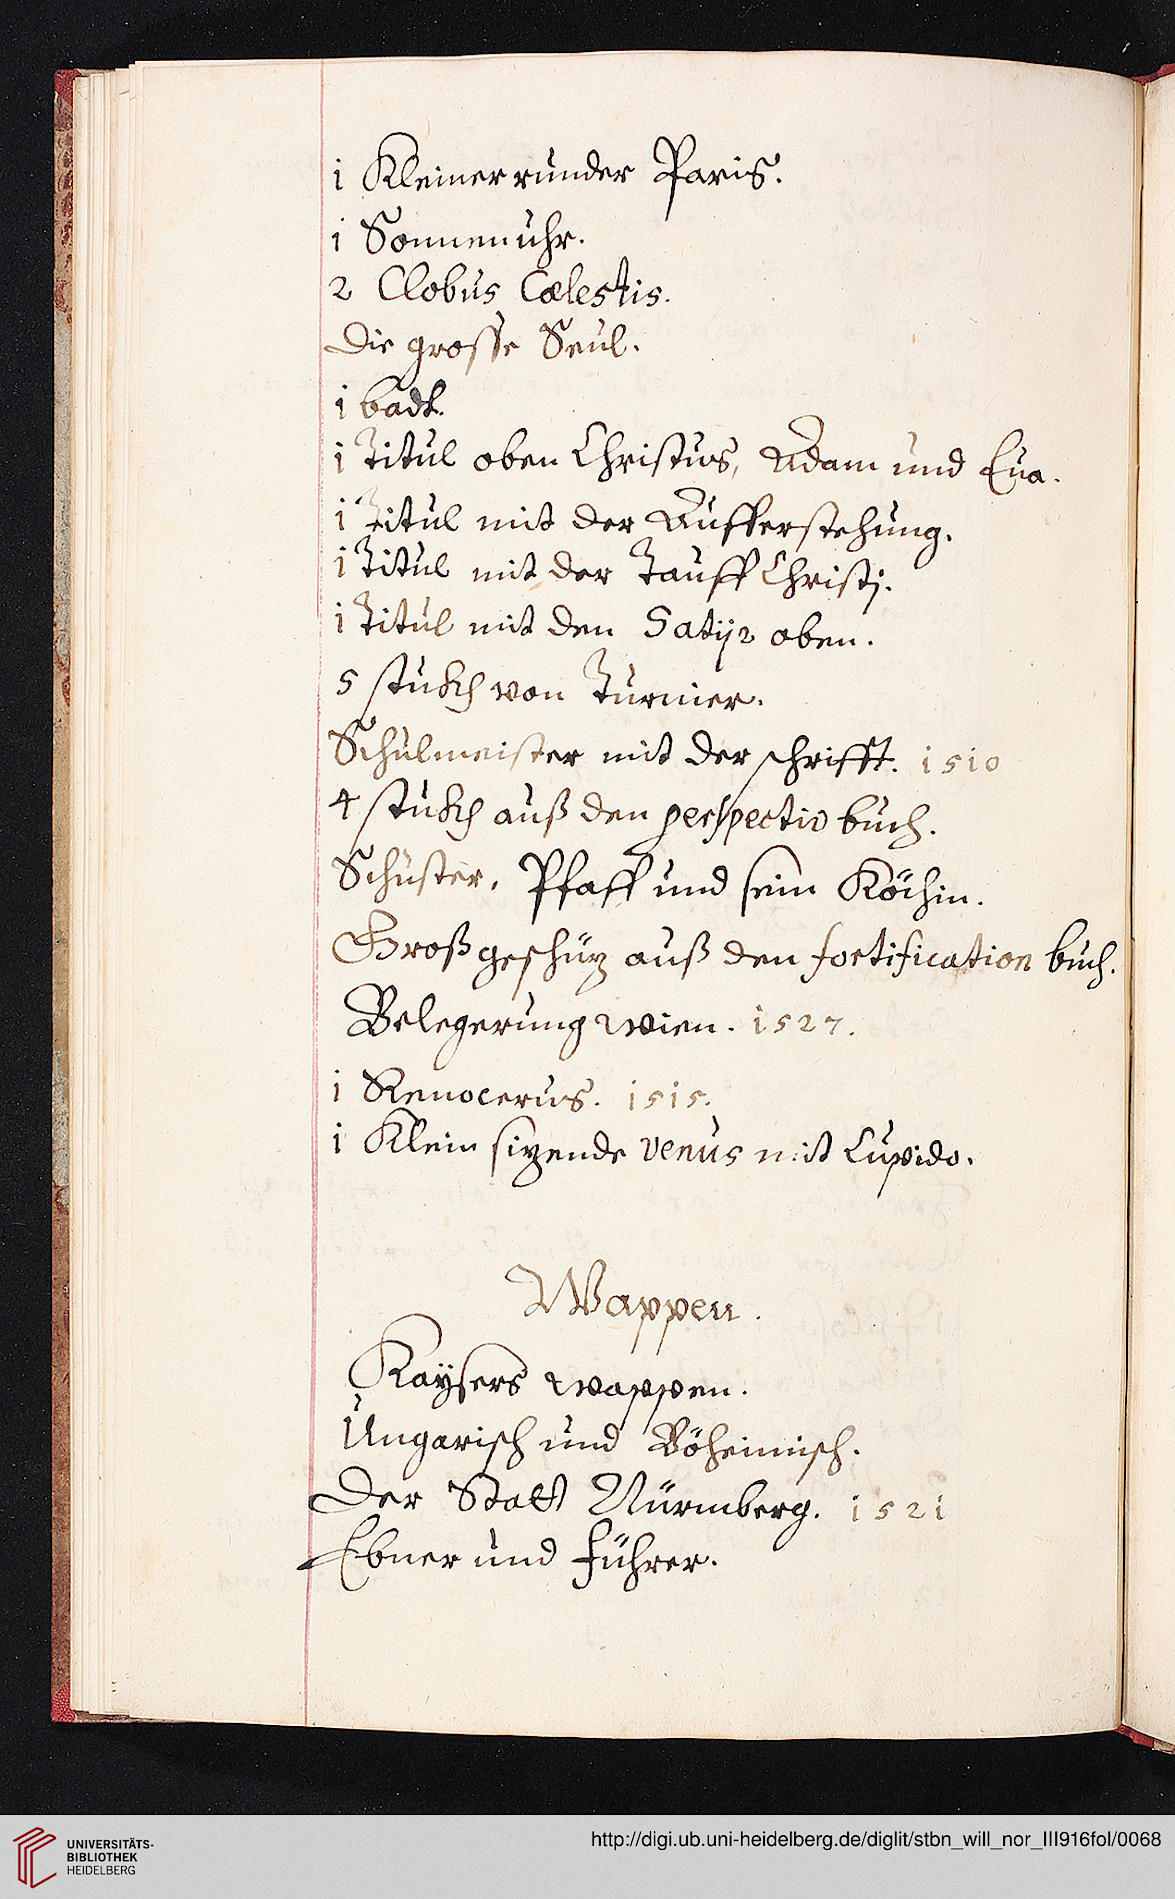 1 Kleiner runder Paris.
1 Sonnen uhr.
2 Clobus Cælestis.
Die grosse Seul.
1 badt.
1 Titul oben Christus, Adam und Eua.
1 Titul mit der Aufferstehung.
1 Titul mit der Tauff Christj.
1 Titul mit den Satijr oben.
5 stukh von Turnier.
Schulmeister mit der schrifft. 1510
4 stukh auß den perspectiv buch.
Schuster, Pfaff und sein Köchin.
Groß geschüz auß den fortification buch.
Belegerung wien. 1527.
1 Renocerus. 1515.
1 Klein sizende Venus mit Cupido.
Wappen.
Kaysers wappen.
Ungarisch und Böheimisch.
Der Statt Nürmberg. 1521
Ebner und führer.
UNIVERSITÄTS-
BIBLIOTHEK
HEIDELBERG
http://digi.ub.uni-heidelberg.de/diglit/stbn_will_nor_III916fol/0068